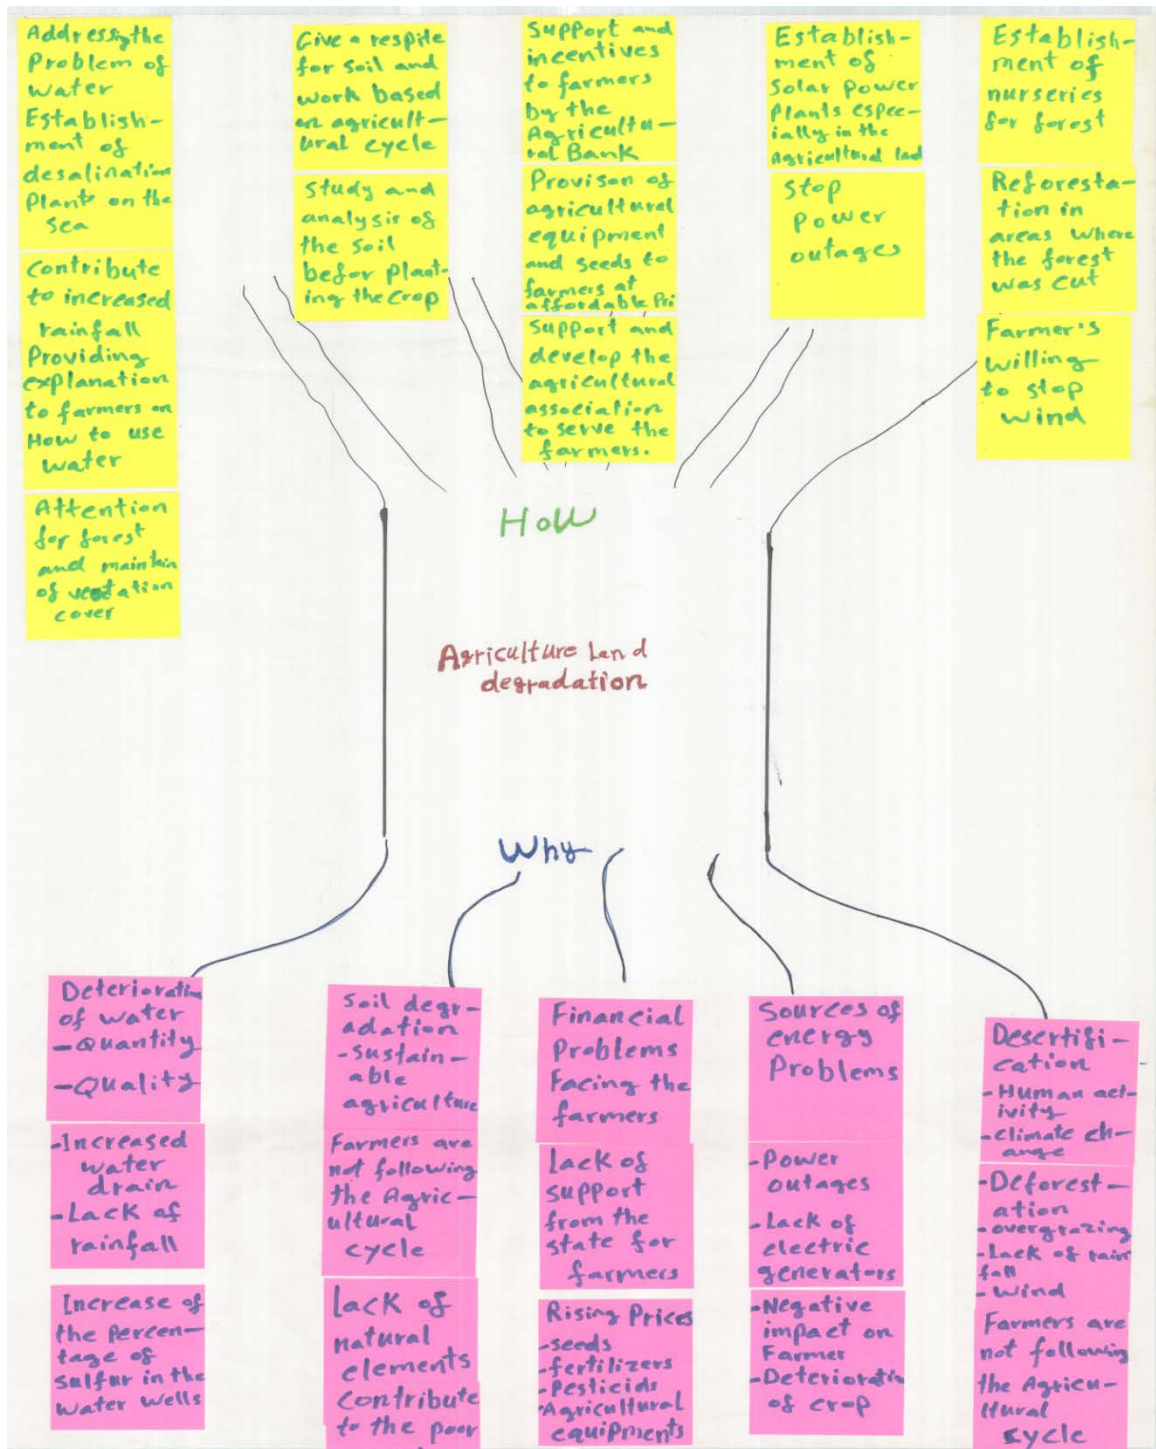 Addressing the
Problem of
water
Establish-
ment of
desalination
Plants on the
sea
Contribute
to increased
rainfall
Providing
explanation
to farmers on
How to use
water
Attention
for forest
and maintain
of vegetation
cover
Give a respite
for soil and
work based
on agricult-
ural cycle
Study and
analysis of
the soil
befor plant-
ing the crop
Support and
incentives
to farmers
by the
Agricultu-
ral Bank
Provison of
agricultural
equipment
and seeds to
farmers at
affordable Pri
Support and
develop the
agricultural
association
to serve the
farmers.
Establish-
ment of
Solar power
Plants espec-
ially in the
Agricultural lad
Stop
Power
outages
Establish-
ment of
nurseries
for forest
Reforesta-
tion in
areas where
the forest
was cut
Farmer's
willing
to stop
wind
HOW
Agriculture Land
degradation
Why
Deterioratin
of water
-Quantity
-Quality
-Increased
water
drain
-Lack of
rainfall
Increase of
the Percen-
tage of
Sulfur in the
Water wells
Soil degr-
adation
-Sustain-
able
agriculture
Farmers are
not following
the Agric-
ultural
cycle
lack of
natural
elements
contribute
to the poor
Financial
Problems
Facing the
farmers
lack of
support
from the
state for
farmers
Rising Prices
-seeds
-fertilizers
-Pesticids
-Agricultural
equipments
Sources of
energy
Problems
-Power
outages
-Lack of
electric
generators
-Negative
impact on
Farmer
-Deterioratin
of crop
Desertifi-
cation
-Human act-
ivity
-climate ch-
ange
-Deforest-
ation
-overgrazing
-Lack of rain
fall
-Wind
Farmers are
not following
the Agricu-
ltural
cycle